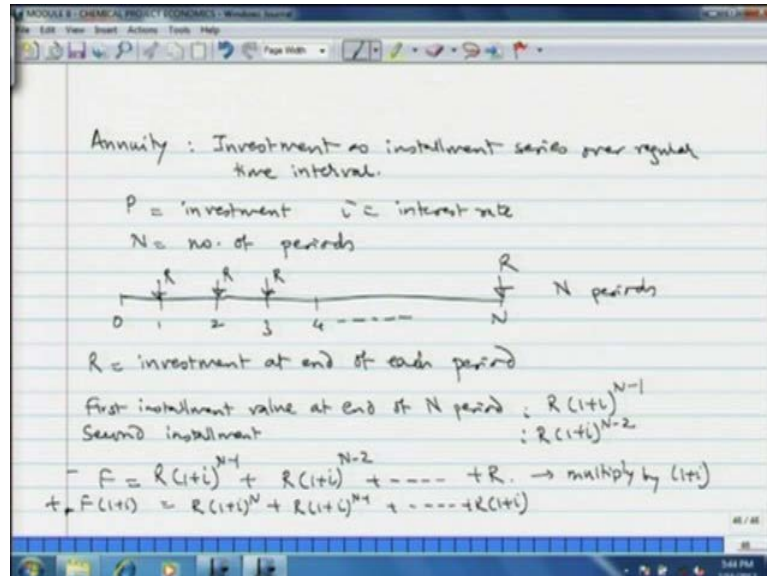 MODULE 8 - CHEMICAL PROJECT ECONOMICS - Windows Journal
File Edit View Insert Actions Tools Help
Page Width
Annuity : Investment as installment series over regular
time interval.
P = investment i = interest rate
N = no. of periods
R R R R
N periods
0 1 2 3 4 ------ N
R = investment at end of each period
First installment value at end of N period : R(1+i)^{N-1}
Second installment : R(1+i)^{N-2}
- F = R(1+i)^{N-1} + R(1+i)^{N-2} + ---- + R. → multiply by (1+i)
+ F(1+i) = R(1+i)^N + R(1+i)^{N-1} + ----- + R(1+i)
5:44 PM